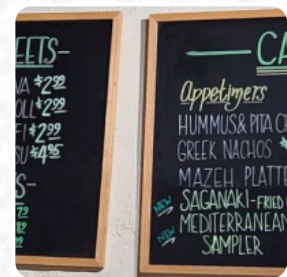 EETS-
VA $2.99
OLL $2.99
FI $2.99
SU $4.95
S-
79
82
99
CA
Appetizers
HUMMUS & PITA CH
GREEK NACHOS $
MAZEH PLATTE
NEW SAGANAKI-FRIED
NEW MEDITERRANEAN
SAMPLER